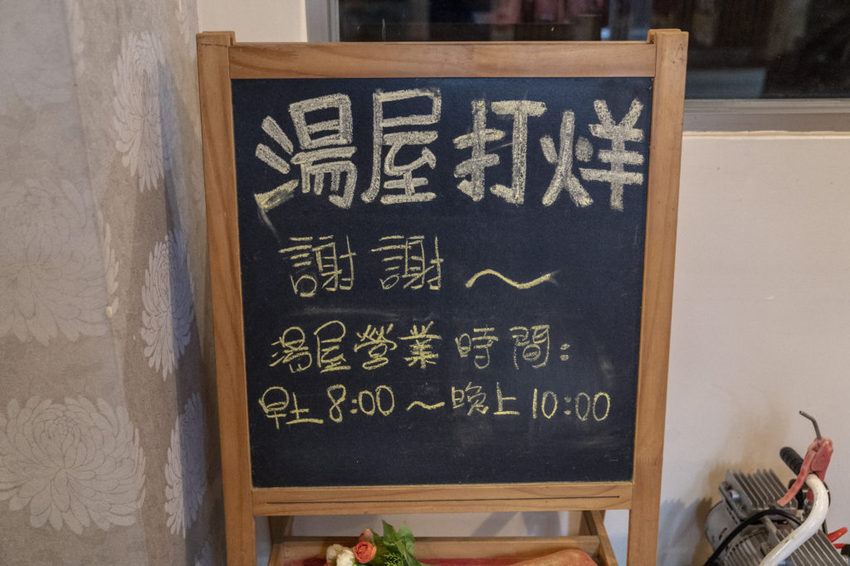 湯屋打烊
謝謝～
湯屋營業時間:
早上8:00～晚上10:00